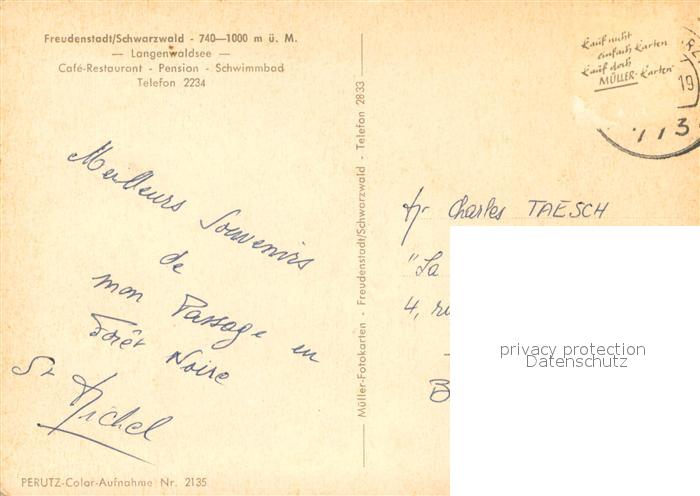 Freudenstadt/Schwarzwald - 740—1000 m ü. M.
— Langenwaldsee —
Café-Restaurant - Pension - Schwimmbad
Telefon 2234
Kauf nicht
einfach Karten
Kauf doch
MÜLLER-Karten
19
Meilleurs Souvenirs
de
mon Passage en
Forêt Noire
Müller-Fotokarten - Freudenstadt/Schwarzwald - Telefon 2833
Charles TAESCH
"La
4, ru
B
privacy protection
Datenschutz
PERUTZ-Color-Aufnahme Nr. 2135